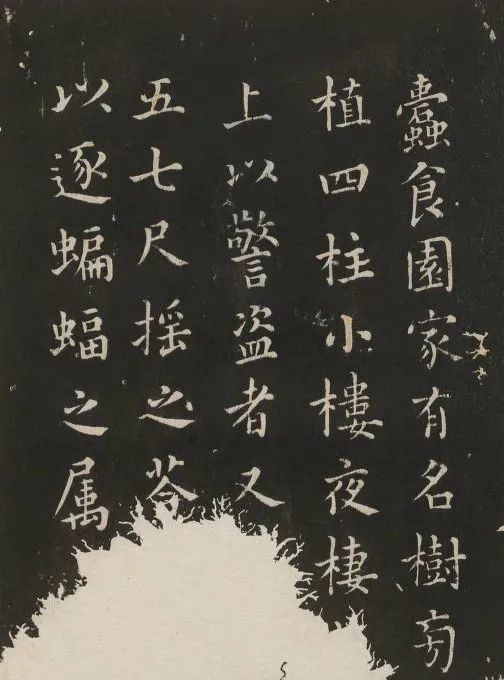 蠹食園家有名樹旁
植四柱小樓夜棲
上以警盜者又
五七尺搖之荅
以逐蝙蝠之属